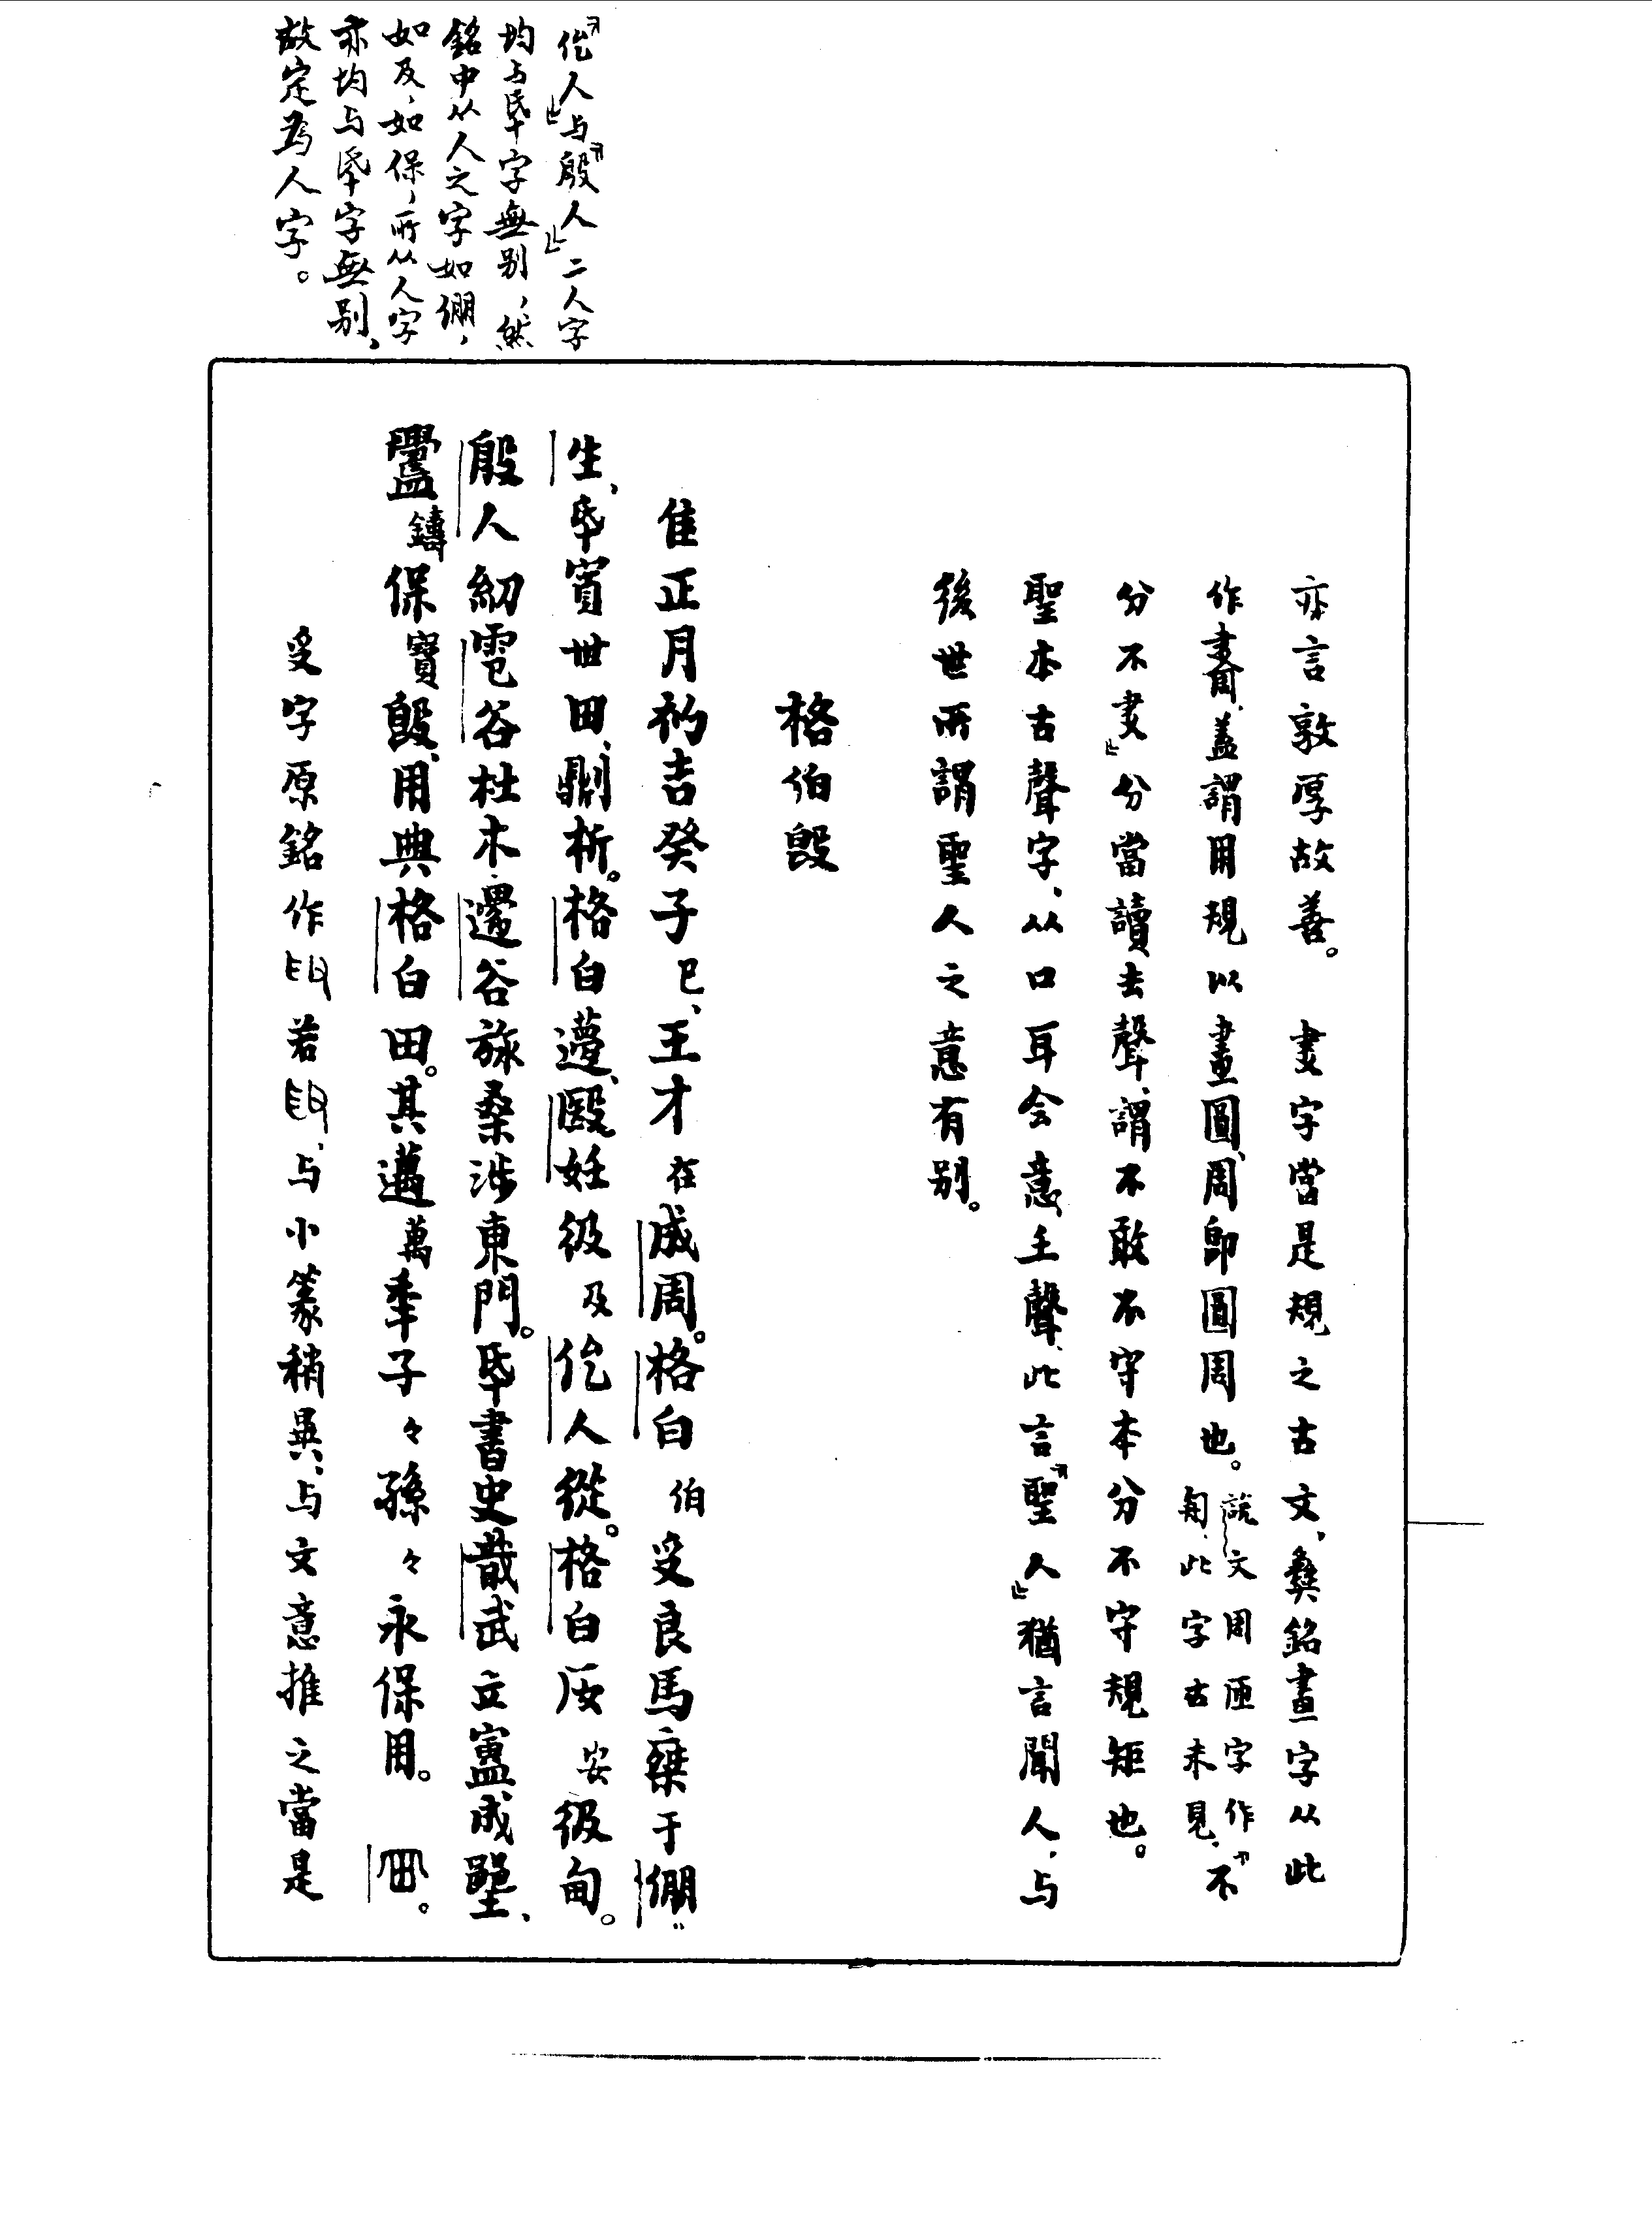 「佁人」与「殷人」二人字
均与氒字無别，然
銘中从人之字如倗，
如及，如保，所从人字
亦均与氒字無别，
故定爲人字。
亦言敦厚故善。　叏字當是規之古文，彝銘畫字从此
作畵，蓋謂用規以畫圓，周卽圓周也。
説文周匝字作
匊，此字古未見，
「不
分不叏」分當讀去聲，謂不敢不守本分不守規矩也。
聖本古聲字，从口耳会意，𡈼聲，此言「聖人」猶言聞人，与
後世所謂聖人之意有别。
格伯𣪘
隹正月初吉癸子巳，王才在成周。格白伯受良馬椉于倗"
生，氒賓世田，劓析。格白邊，毆妊彶及佁人從。格白㡴安彶甸。
殷人紉雹谷杜木，邍谷旅桑涉東門。氒書史戠武立盨成壂，
鑄保寶𣪘，用典格白田。其邁萬年子々孫々永保用。　。
受字原銘作若，与小篆稍異，与文意推之當是